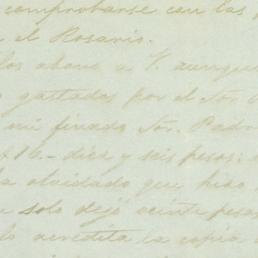 comprobarse con las
n el Rosario.
los abone a V. aunque
gastadas por el Sor.
mi finado Sor. Padre
$16.- diez y seis pesos;
ha olvidado que hizo
solo dejó veinte pesos
lo acredita la copia